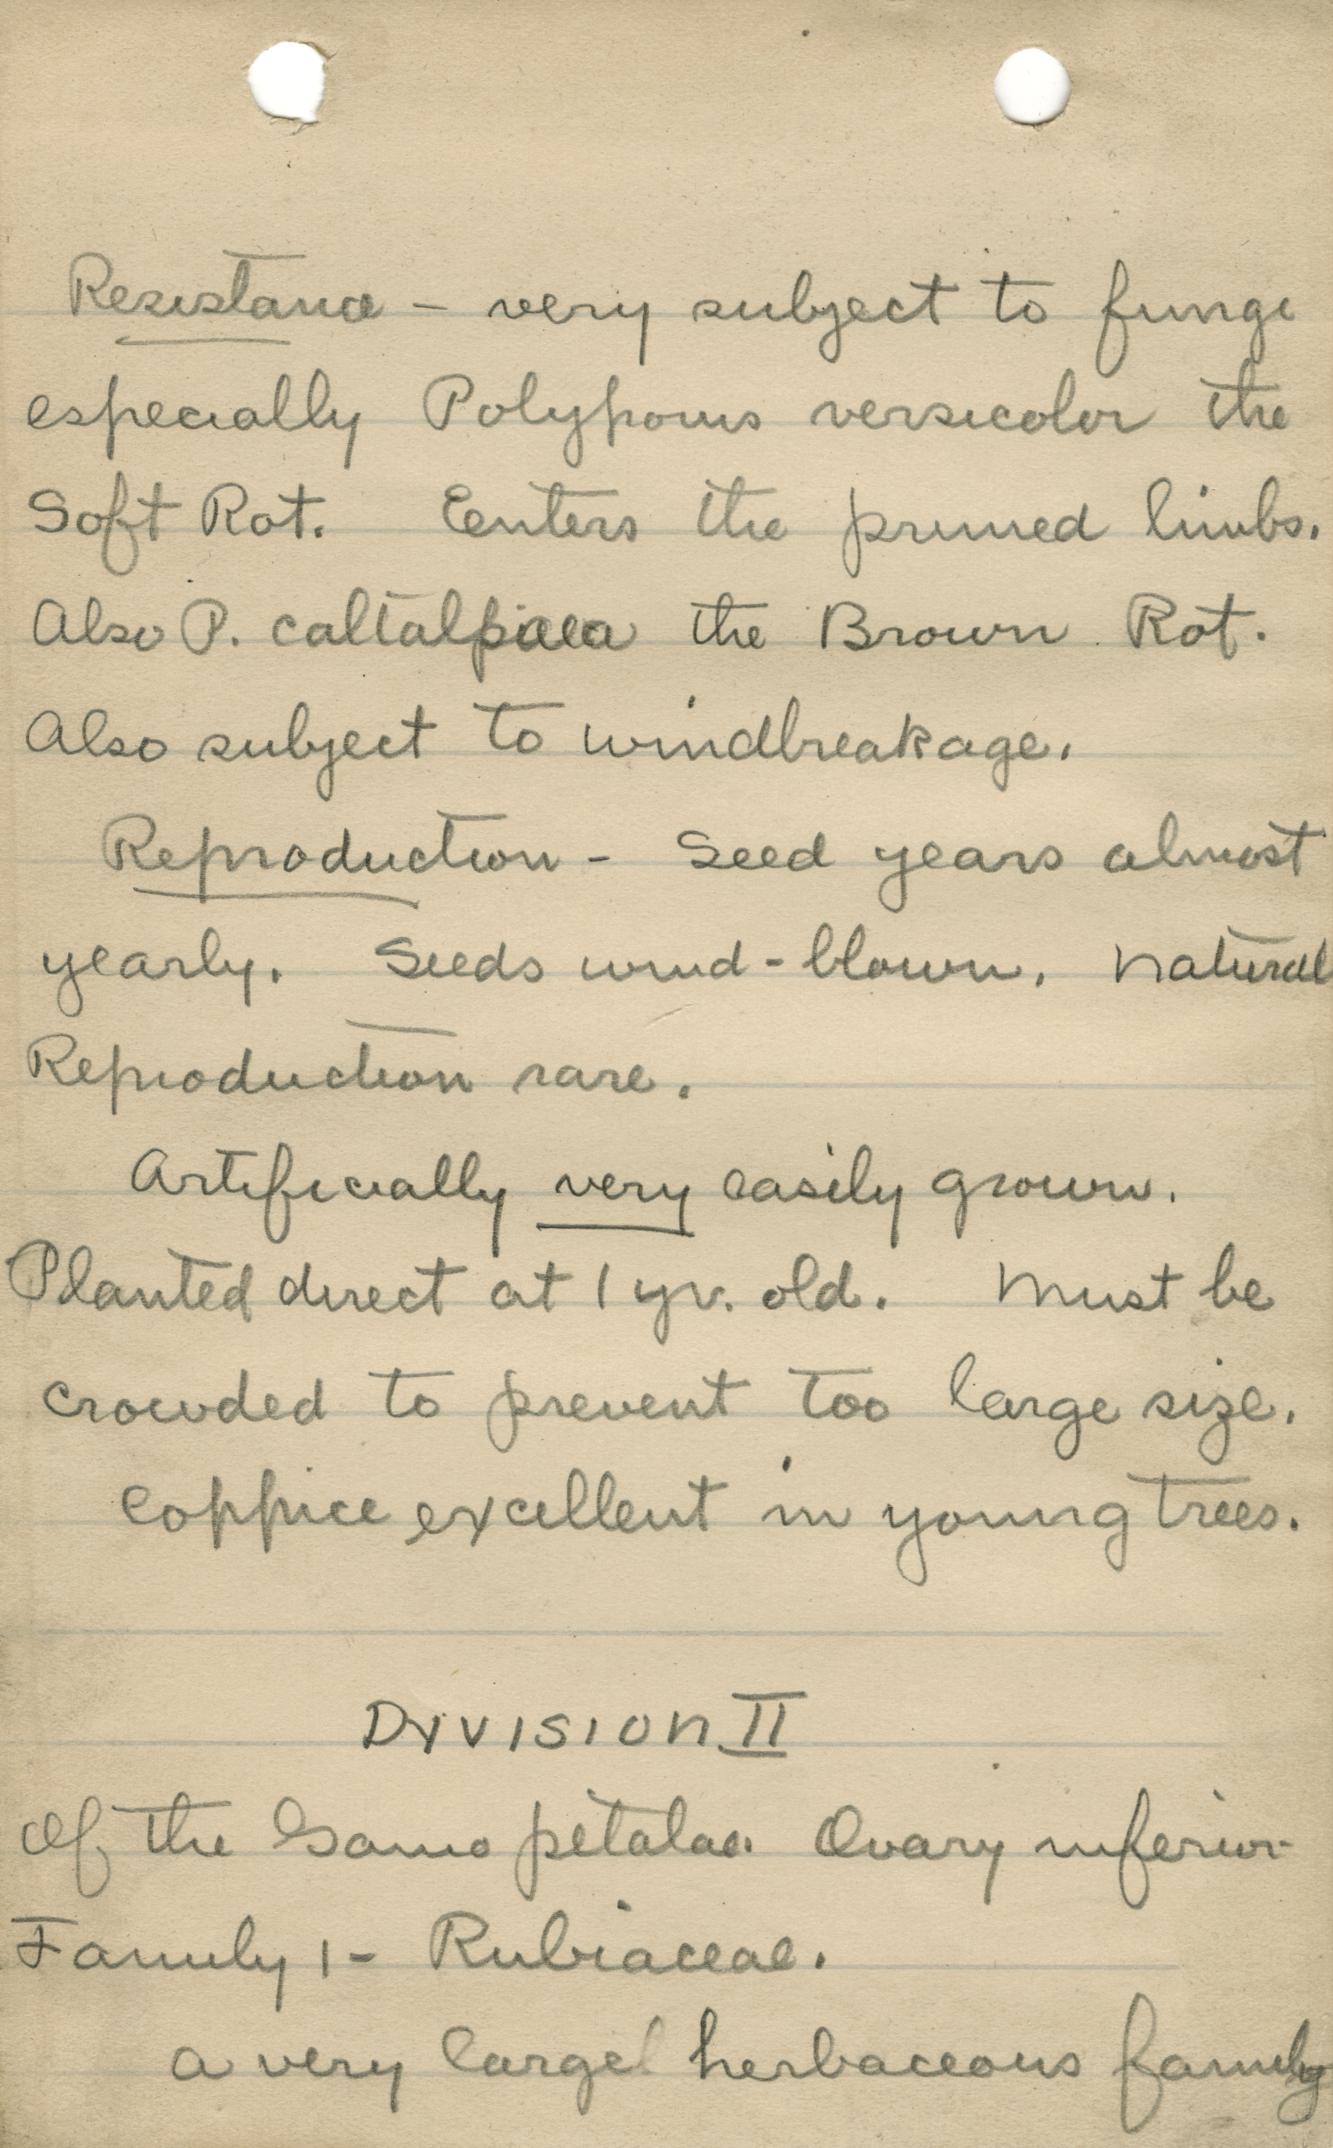 Resistance - very subject to fungi
especially Polyporus versicolor the
Soft Rot. Enters the pruned limbs.
Also P. caltalpiaea the Brown Rot.
Also subject to windbreakage.
Reproduction - Seed years almost
yearly. Seeds wind-blown. Natural
Reproduction rare.
Artificially very easily grown.
Planted direct at 1 yr. old. Must be
crowded to prevent too large size.
Coppice excellent in young trees.
DIVISION II
Of the Gamopetalae. Ovary inferior
Family 1- Rubiaceae.
a very large herbaceous family